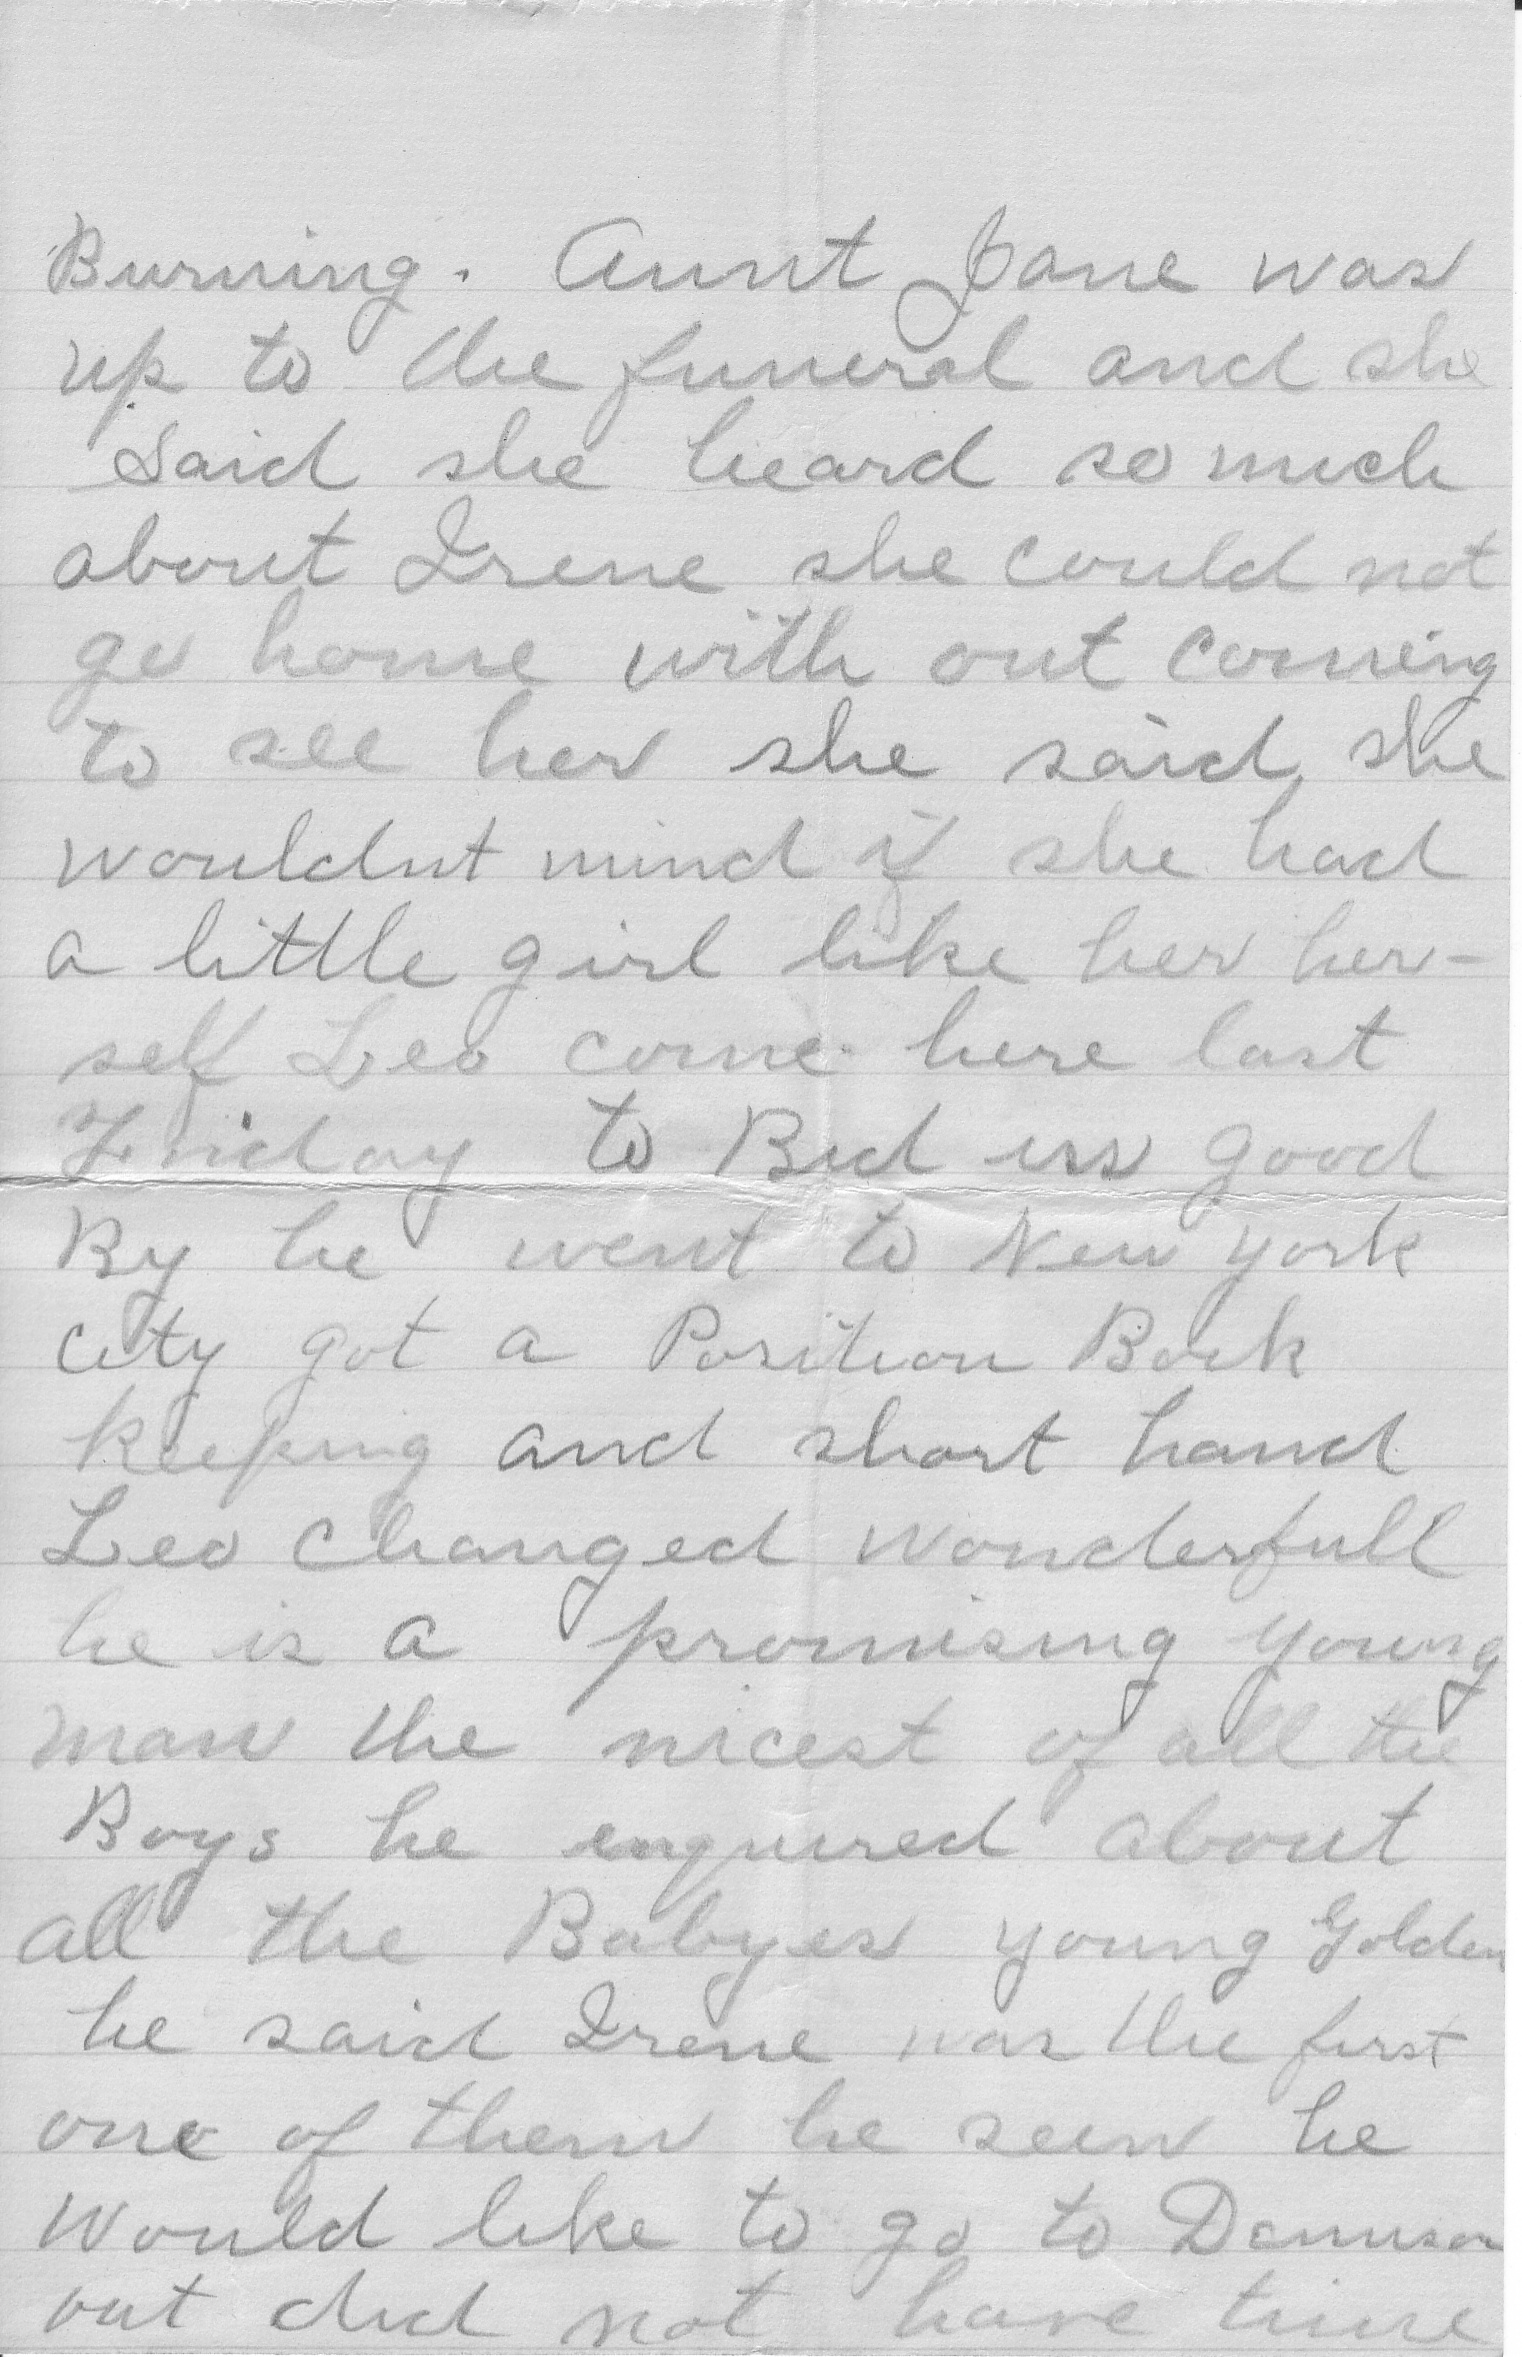 Burning. Aunt Jane was
up to the funeral and she
said she heard so much
about Irene she could not
go home with out coming
to see her she said she
wouldnt mind if she had
a little girl like her her-
self Leo come here last
Friday to Bid us good
By he went to New York
City got a Position Book
keeping and short hand
Leo changed wonderfull
he is a promising young
man the nicest of all the
Boys he enqured about
all the Babyes young Golden
he said Irene was the first
one of them he seen he
would like to go to Dennison
out did not have time